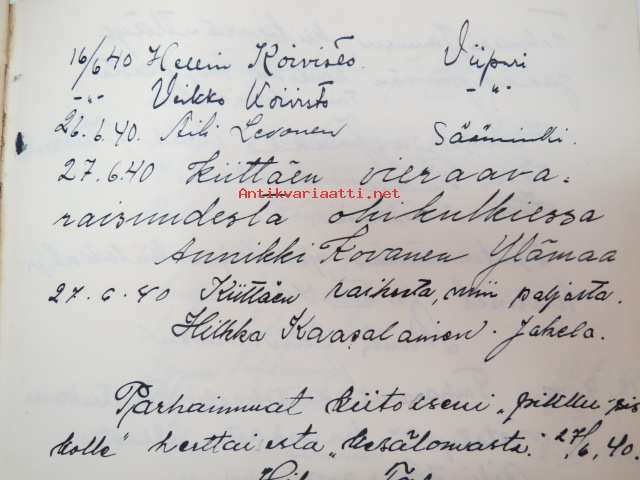 16/6 40 Hellin Koivisto. Viipuri
-"- Veikko Koivisto -"-
26.6.40. Aili Levonen Sääminki.
27.6.40 Kiittäen vieraava-
Antikvariaatti.net
raisuudesta ohikulkiessa
Annikki Kovanen Ylämaa
27.6.40 Kiittäen raikosta, niin paljosta.
Hilkka Kaasalainen. Jakela.
Parhaimmat kiitokseni "pikku-sis-
kolle" herttaisesta "kesälomasta." 27/6.40.